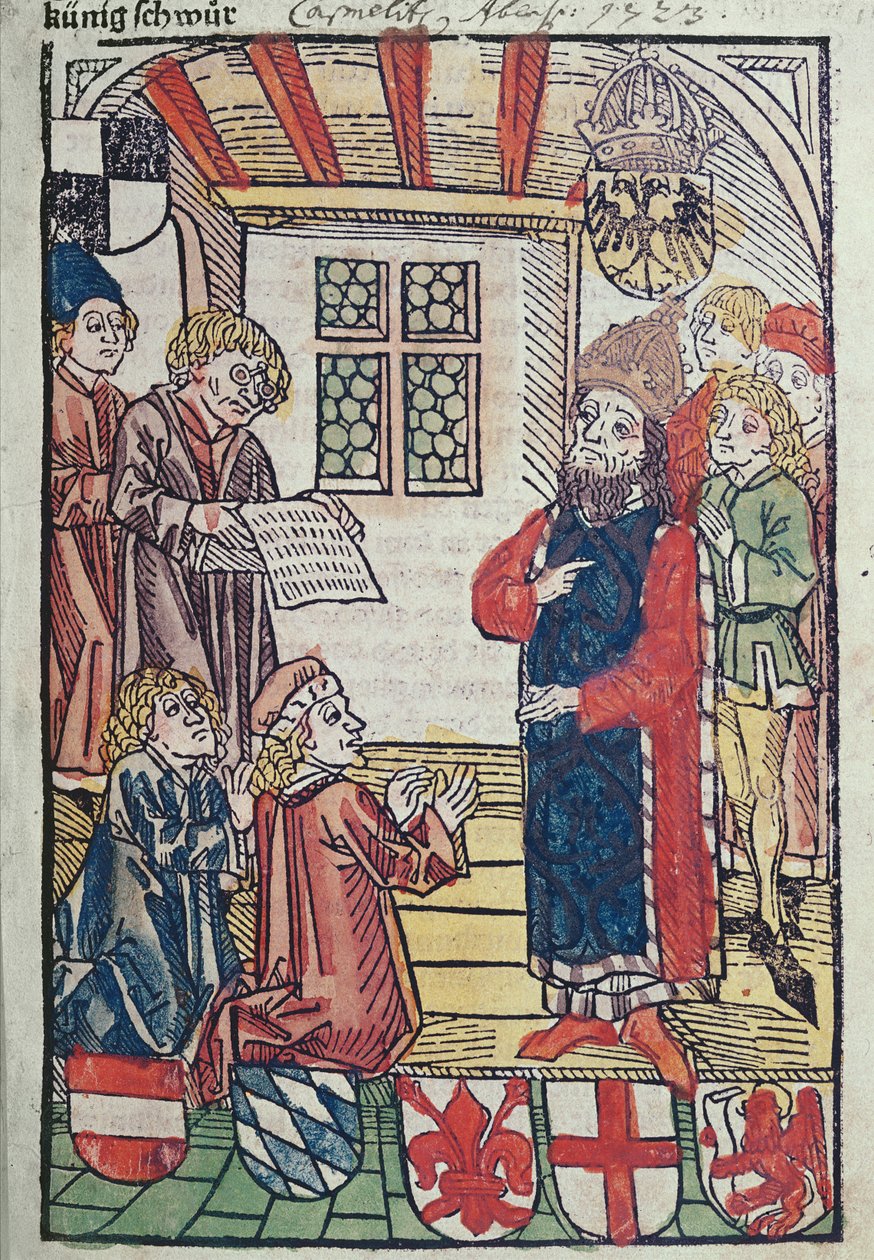 künig schwůr Carmelit, Abensp: 1723.